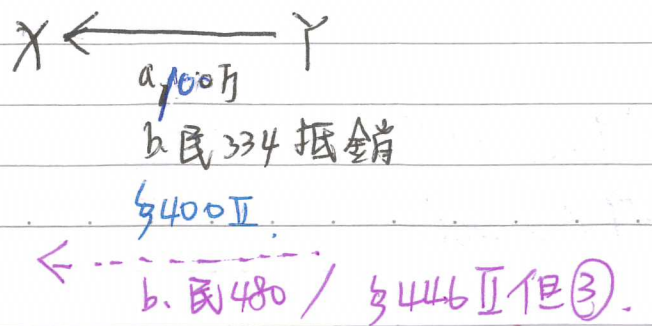 X Y
a. 100万
b. 民334 抵銷
§400Ⅱ.
b. 民480 / §446Ⅱ但③.